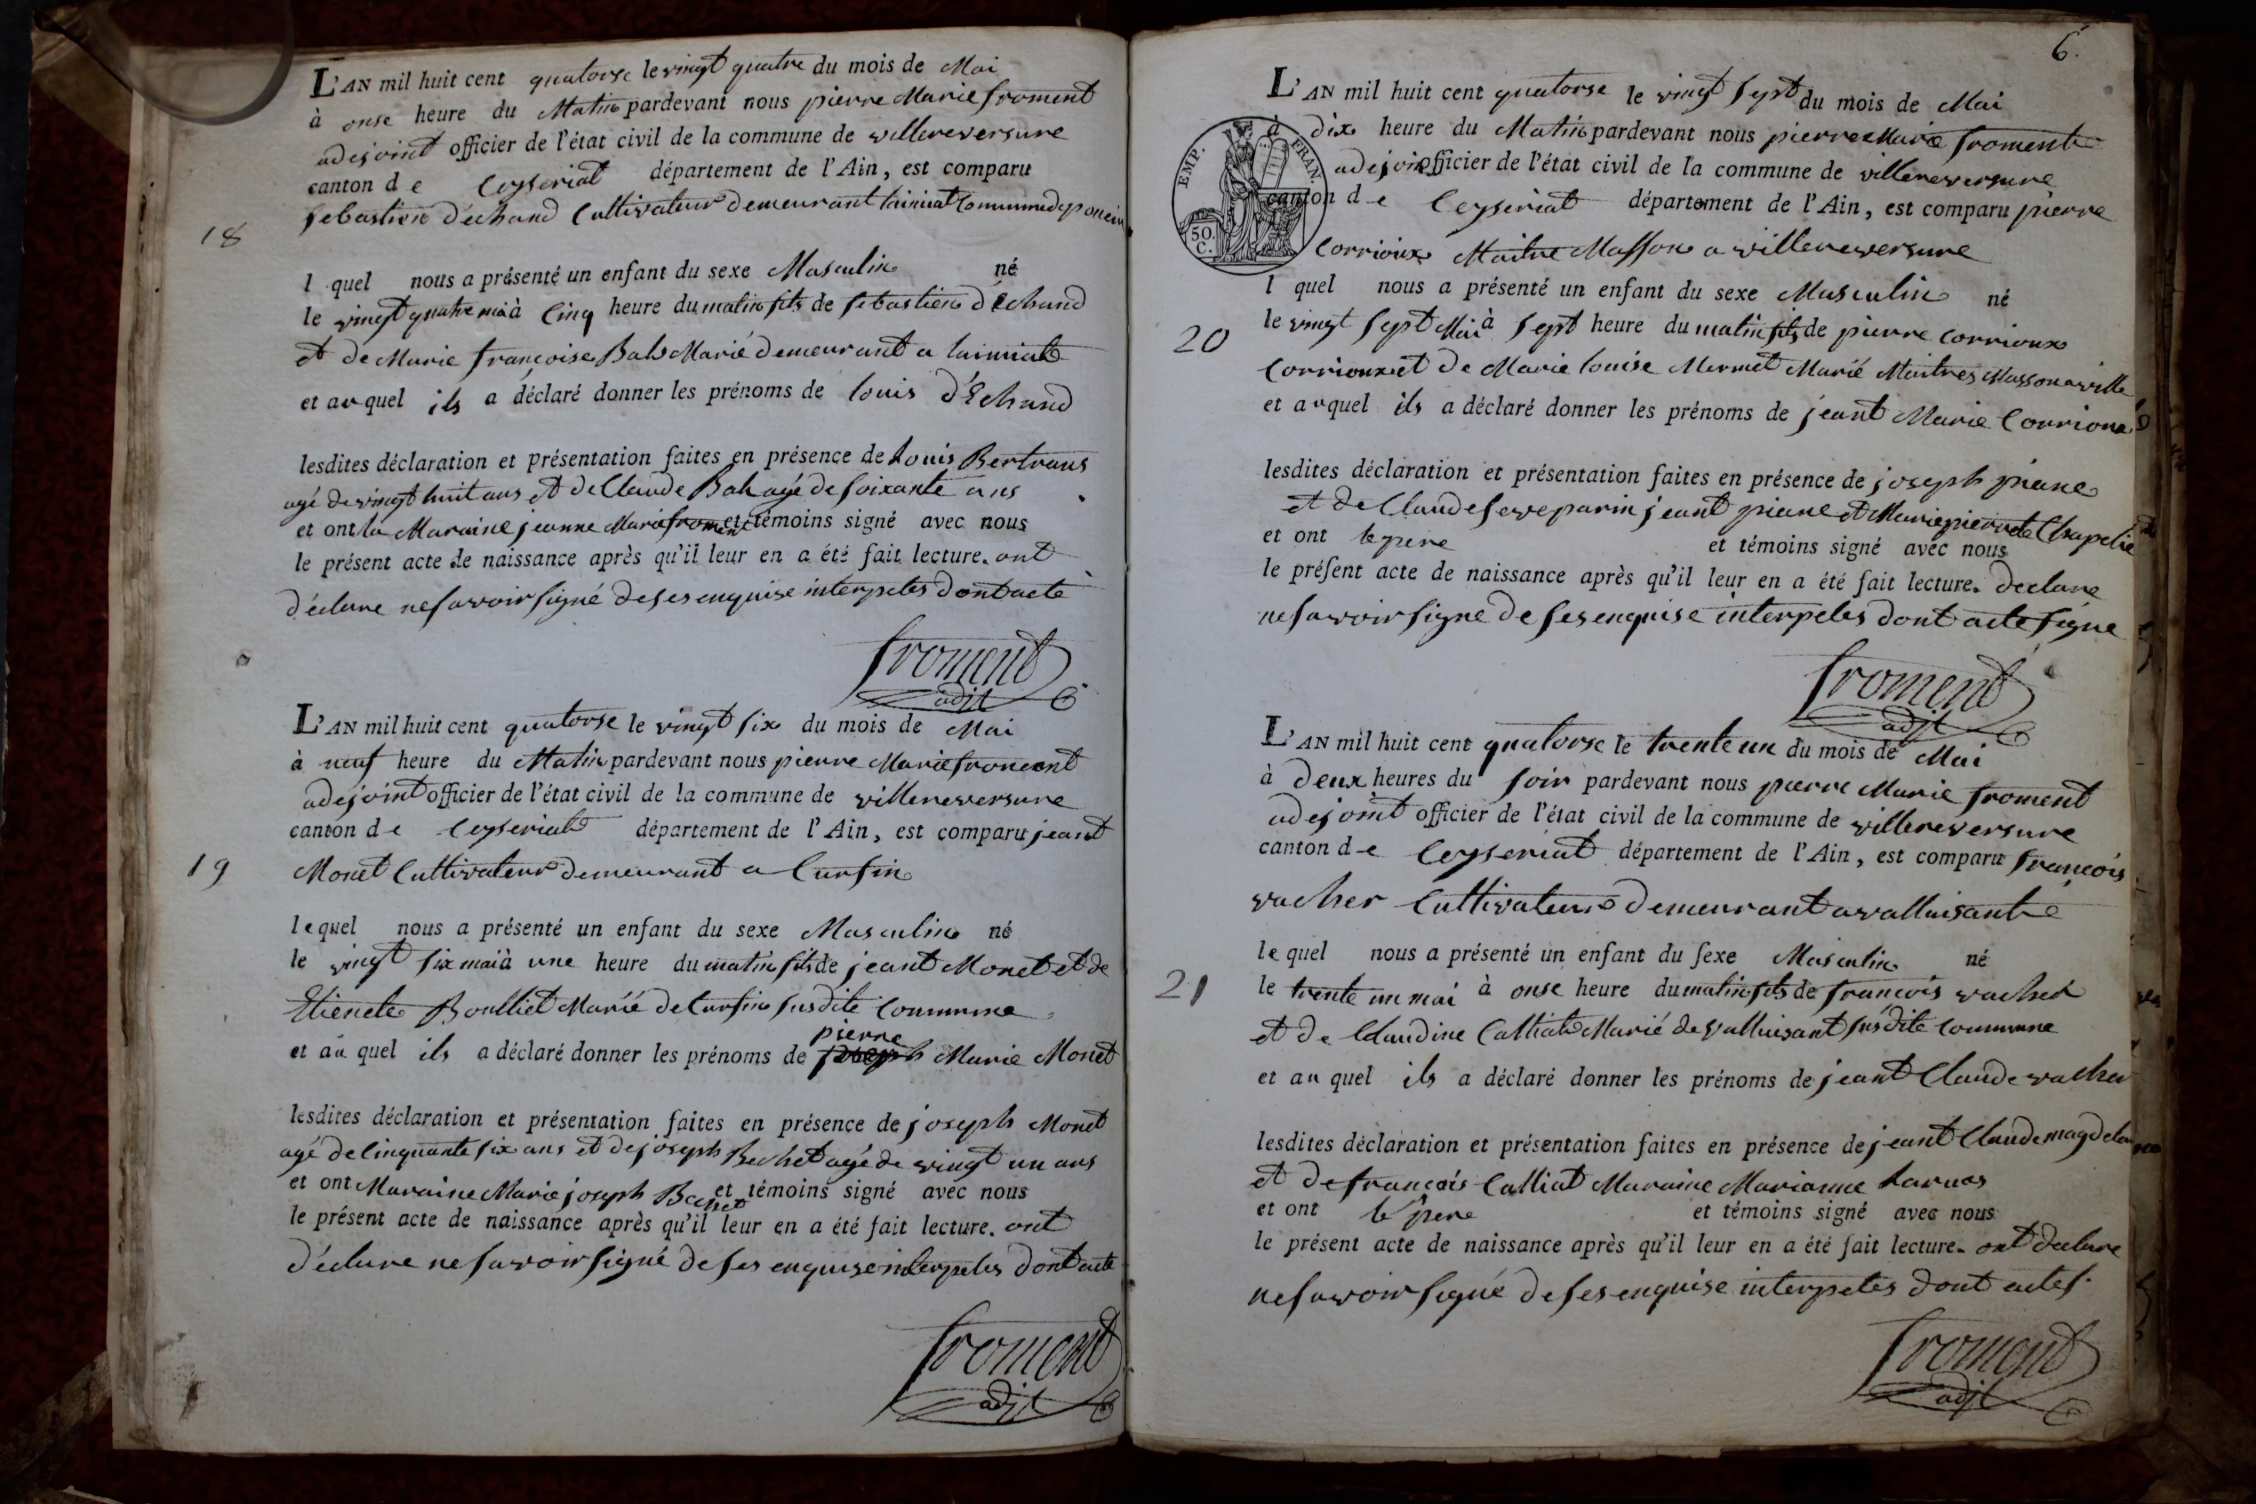 L'AN mil huit cent quatorse le vingt quatre du mois de Mai
à onse heure du Matin pardevant nous pierre Marie froment
adejoint officier de l'état civil de la commune de villereversure
canton de Ceyseriat département de l'Ain, est comparu
sebastien déchand Cultivateur demeurant Commune de poncin
18
l quel nous a présenté un enfant du sexe Masculin né
le vingt quatre mai à Cinq heure du matin fils de sebastien déchand
et de Marie françoise Bal Marié demeurant a
et auquel ils a déclaré donner les prénoms de louis d'Echand
lesdites déclaration et présentation faites en présence de Louis Bertrans
agé de vingt huit ans et de Claude Bal agé de soixante ans
et ont la Maraine jeanne Marie froment et témoins signé avec nous
le présent acte de naissance après qu'il leur en a été fait lecture. ont
déclare ne savoir signé de ses enquise interpeles dont acte
froment
adjt
L'AN mil huit cent quatorse le vingt six du mois de Mai
à neuf heure du Matin pardevant nous pierre Marie froment
adejoint officier de l'état civil de la commune de villereversure
canton de Ceyseriat département de l'Ain, est comparu jeant
19
Monet Cultivateur demeurant a Cursin
lequel nous a présenté un enfant du sexe Masculin né
le vingt six mai à une heure du matin fils de jeant Monet et de
Etienete Boulliet Marié de Cursin susdite Commune
pierre
et au quel ils a déclaré donner les prénoms de joseph Marie Monet
lesdites déclaration et présentation faites en présence de joseph Monet
agé de Cinquante six ans et de joseph Bechet agé de vingt un ans
et ont Maraine Marie joseph Bechet et témoins signé avec nous
le présent acte de naissance après qu'il leur en a été fait lecture. ont
déclare ne savoir signé de ses enquise interpeles dont acte
froment
adjt
6.
L'AN mil huit cent quatorse le vingt sept du mois de Mai
à dix heure du Matin pardevant nous pierre Marie froment
adejoint officier de l'état civil de la commune de villereversure
canton de Ceyseriat département de l'Ain, est comparu pierre
EMP. FRAN.
50.
C.
Corrioux Maitre Masson a villereversure
l quel nous a présenté un enfant du sexe Masculin né
20
le vingt sept Mai à sept heure du matin fils de pierre Corrioux
Corrioux et de Marie louise Mermet Marié Maitres Masson a ville
et auquel ils a déclaré donner les prénoms de jeant Marie Corrioux
lesdites déclaration et présentation faites en présence de joseph piane
et de Claude seve parin jeant piane et Marie pierrete Chapelie
et ont le pere et témoins signé avec nous
le présent acte de naissance après qu'il leur en a été fait lecture. declare
ne savoir signe de ses enquise interpeles dont acte signe
froment
adjt
L'AN mil huit cent quatorse le trente un du mois de Mai
à deux heures du soir pardevant nous pierre Marie froment
adejoint officier de l'état civil de la commune de villereversure
canton de Ceyseriat département de l'Ain, est comparu françois
vacher Cultivateur demeurant a valluisant
lequel nous a présenté un enfant du sexe Masculin né
21
le trente un mai à onse heure du matin fils de françois vacher
et de Claudine Calliat Marié de valluisant susdite Commune
et au quel ils a déclaré donner les prénoms de jeant Claude vacher
lesdites déclaration et présentation faites en présence de jeant Claude
et de françois Calliat Maraine Marianne
et ont le pere et témoins signé avec nous
le présent acte de naissance après qu'il leur en a été fait lecture. ont declare
ne savoir signé de ses enquise interpetes dont acte
froment
adjt